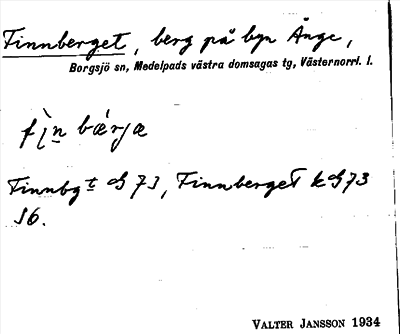 Finnberget, berg på byn Ånge,
Borgsjö sn, Medelpads västra domsagas tg, Västernorrl. l.
fìn bǽrjæ
Finnbgt G 73, Finnberget k G73
S6.
VALTER JANSSON 1934